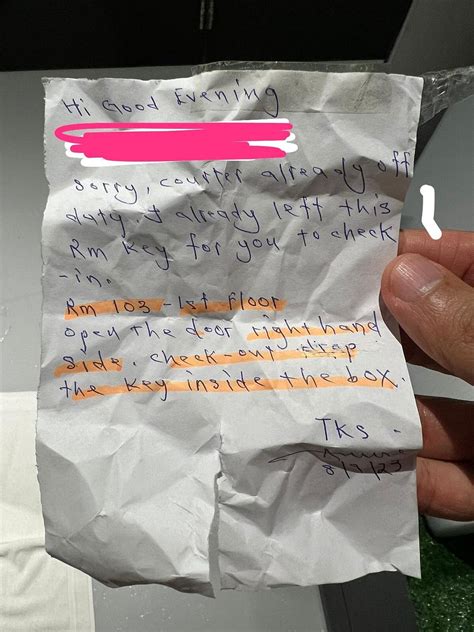 Hi Good Evening
sorry, counter already off
duty. I already left this
Rm key for you to check
-in.
Rm 103 - 1st floor
open the door right hand
side. check-out drop
the key inside the box.
TKS -
8/7/23